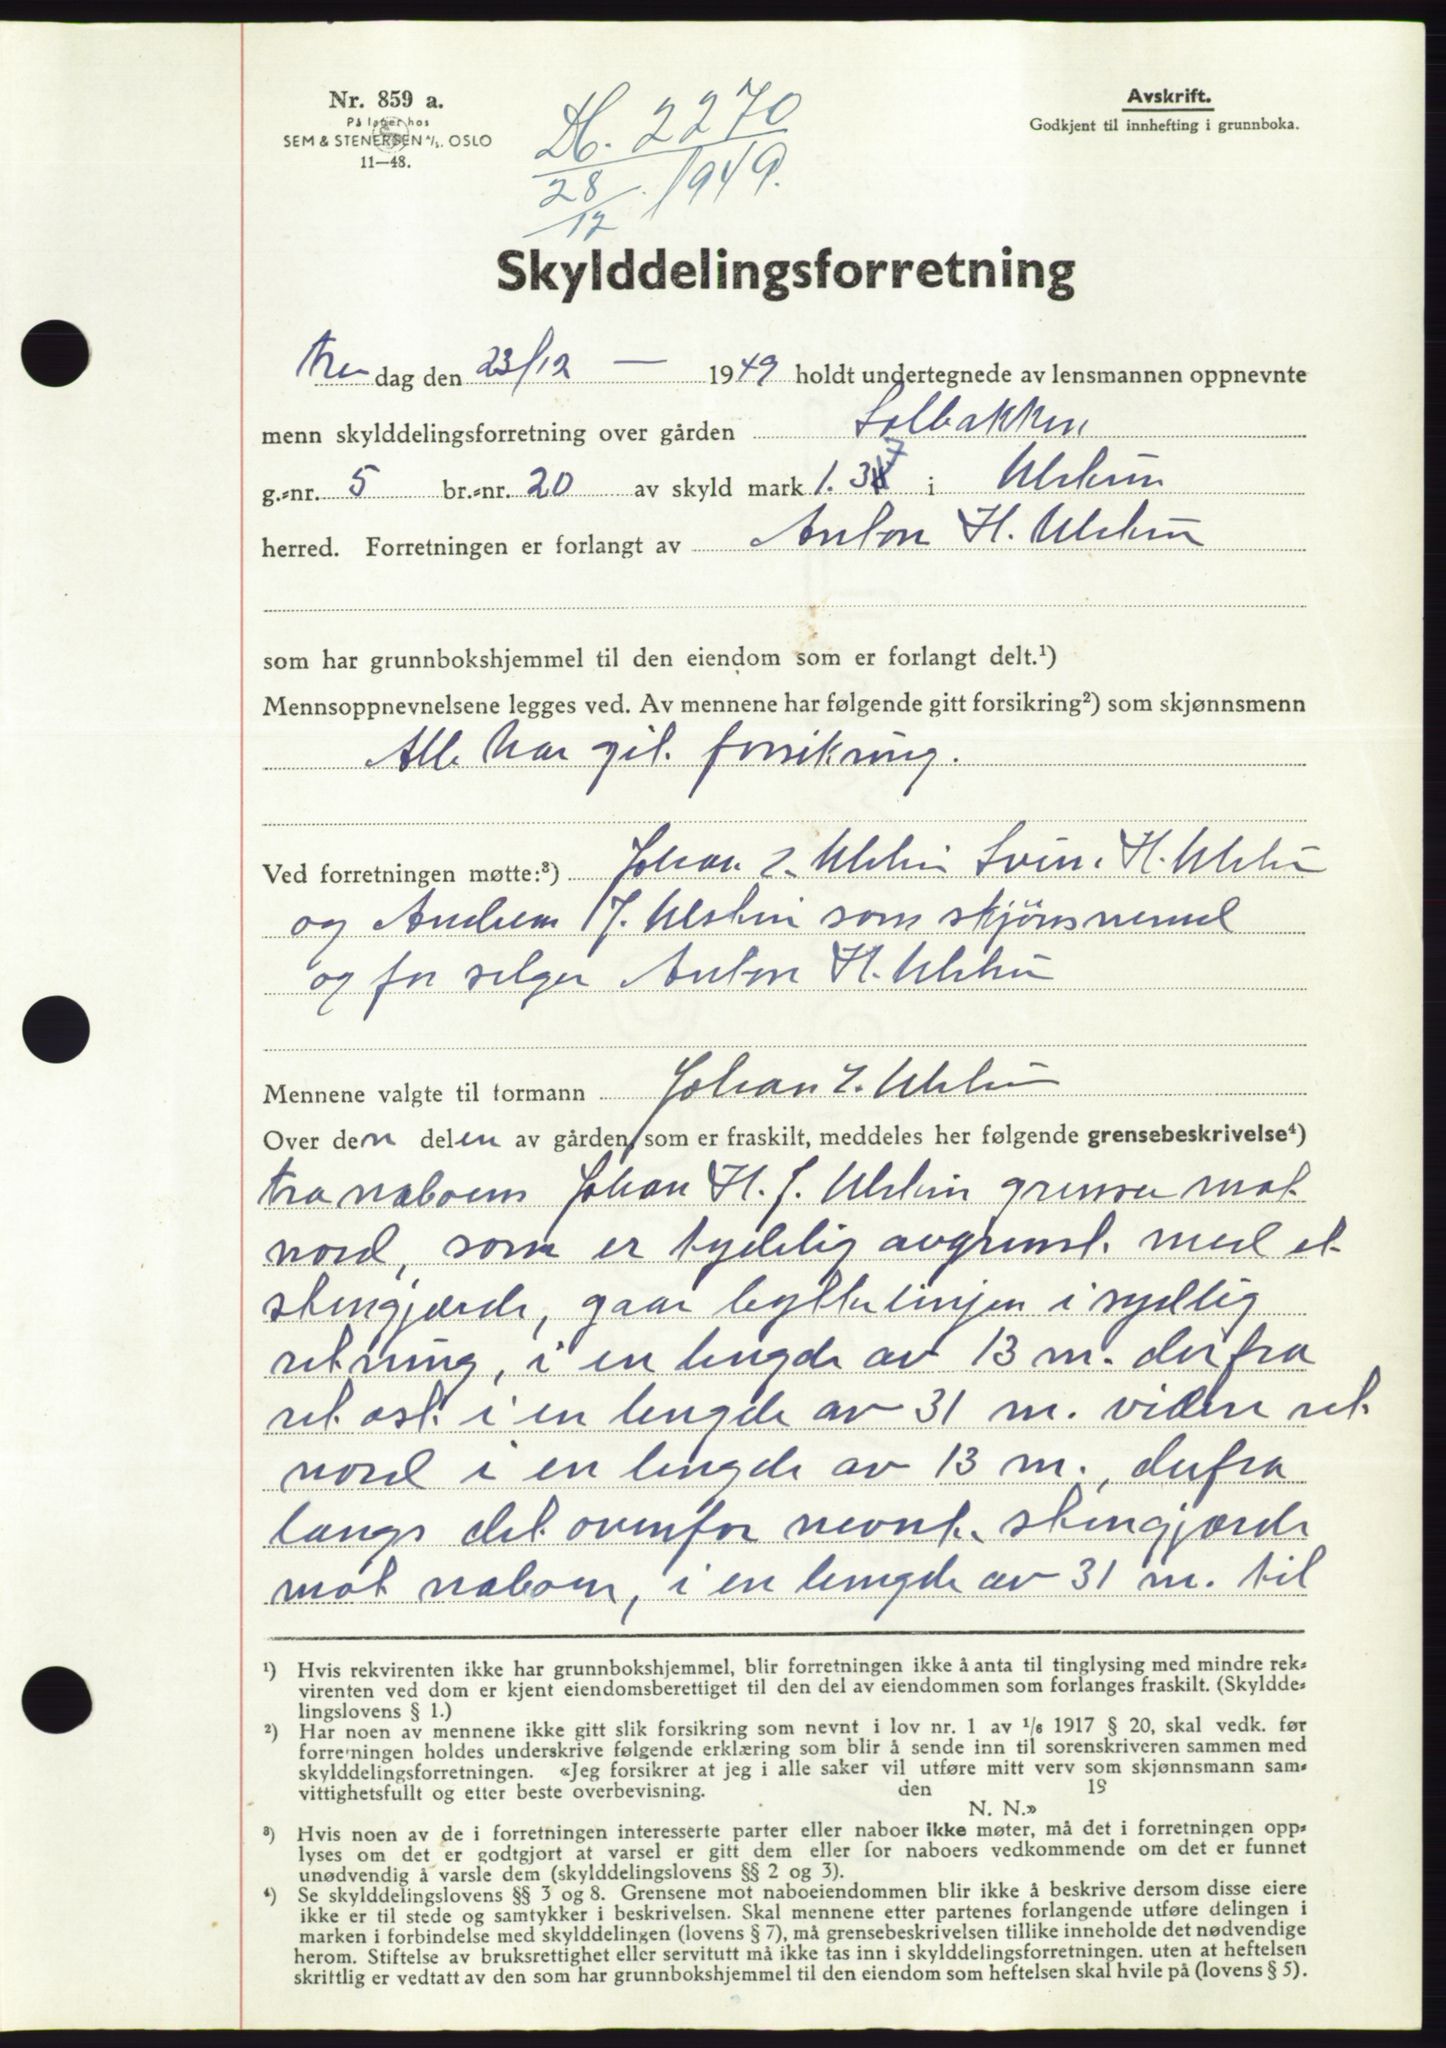 Nr. 859 a.
På lager hos
SEM & STENERSEN A/S. OSLO
11—48.
Db. 2270
28/12 1949.
Avskrift.
Godkjent til innhefting i grunnboka.
Skylddelingsforretning
dag den 23/12 — 1949 holdt undertegnede av lensmannen oppnevnte
menn skylddelingsforretning over gården Solbakken
g.=nr. 5 br.=nr. 20 av skyld mark 1.37 i Ulstein
herred. Forretningen er forlangt av Anton H. Ulstein
som har grunnbokshjemmel til den eiendom som er forlangt delt.¹)
Mennsoppnevnelsene legges ved. Av mennene har følgende gitt forsikring²) som skjønnsmenn
Alle har git forsikring.
Ved forretningen møtte:³) Johan Ulstein Svein H. Ulstein
og Andreas J. Ulstein som skjönsmend
og for selger Anton H. Ulstein
Mennene valgte til formann Johan Ulstein
Over den delen av gården, som er fraskilt, meddeles her følgende grensebeskrivelse⁴)
fra naboens Johan H. J. Ulstein grense mot
nord, som er tydelig avgrenset med et
stengjærde, gaar byttelinjen i sydlig
retning, i en lengde av 13 m. derfra
ret ost i en lengde av 31 m. videre ret
nord i en lengde av 13 m., derfra
langs det ovenfor nevnte stengjærde
mot naboen, i en lengde av 31 m. til
¹) Hvis rekvirenten ikke har grunnbokshjemmel, blir forretningen ikke å anta til tinglysing med mindre rek=
virenten ved dom er kjent eiendomsberettiget til den del av eiendommen som forlanges fraskilt. (Skyldde=
lingslovens § 1.)
²) Har noen av mennene ikke gitt slik forsikring som nevnt i lov nr. 1 av 1/6 1917 § 20, skal vedk. før
forretningen holdes underskrive følgende erklæring som blir å sende inn til sorenskriveren sammen med
skylddelingsforretningen. «Jeg forsikrer at jeg i alle saker vil utføre mitt verv som skjønnsmann sam=
vittighetsfullt og etter beste overbevisning. den 19
N. N.»
³) Hvis noen av de i forretningen interesserte parter eller naboer ikke møter, må det i forretningen opp=
lyses om det er godtgjort at varsel er gitt dem eller for naboers vedkommende om det er funnet
unødvendig å varsle dem (skylddelingslovens §§ 2 og 3).
⁴) Se skylddelingslovens §§ 3 og 8. Grensene mot naboeiendommen blir ikke å beskrive dersom disse eiere
ikke er til stede og samtykker i beskrivelsen. Skal mennene etter partenes forlangende utføre delingen i
marken i forbindelse med skylddelingen (lovens § 7), må grensebeskrivelsen tillike inneholde det nødvendige
herom. Stiftelse av bruksrettighet eller servitutt må ikke tas inn i skylddelingsforretningen. uten at heftelsen
skriftlig er vedtatt av den som har grunnbokshjemmel til den eiendom som heftelsen skal hvile på (lovens § 5).